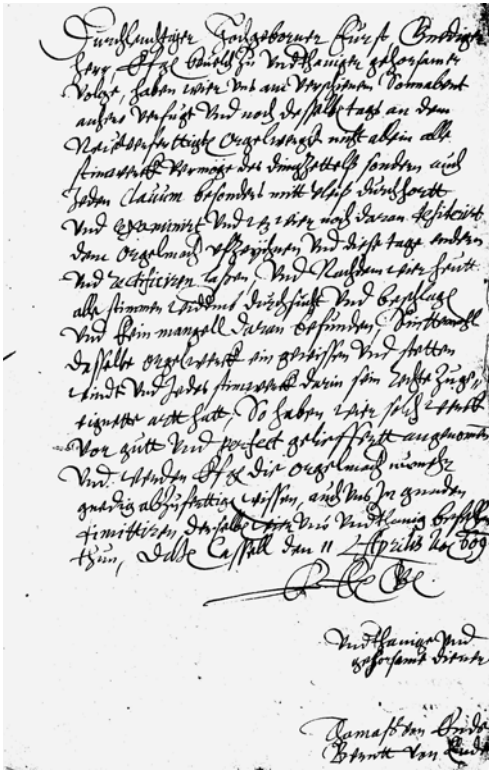 Durchleuchtiger Hochgeborner Fürst Gnediger
Herr, E f g bevelch zu Underthaniger gehorsamer
Volge, haben wier uns am verschienen Sonnabent
anhero verfugt Und noch desselben tags an dem
Neuverferttigten Orgelwergk nicht allein alle
stimwerck vermöge des dingzettels sondern auch
Jeden Clavem besonders mitt vleiß durchhortt
Und examinirt Und was wier noch daran desiderirt
dem Orgelmacher uffzeichnen Und diese tage endern
Und rectificiren laßen, Und Nachdem wier heutt
alle stimmen durchsucht Und beschlagen
Und kein mangell daran befunden, Sinttemahl
dasselbe Orgelwerck ein gewissen Und stetten
windt Und Jedes stimwerck darin sein rechte Zuge-
eignette artt hatt, So haben wier solch werck
vor gutt Und perfect gelieffertt angenomen
Und werden E f g die Orgelmacher nunmehr
gnedig abzufertigen wissen, auch uns In gnaden
dimittiren, derselben wier uns Underthanig
thun, Datum Cassell den 11 Aprilis Ao 609
E f g
Underthanige Und
gehorsame diener
Thomas von Ende
Berntt von Ende